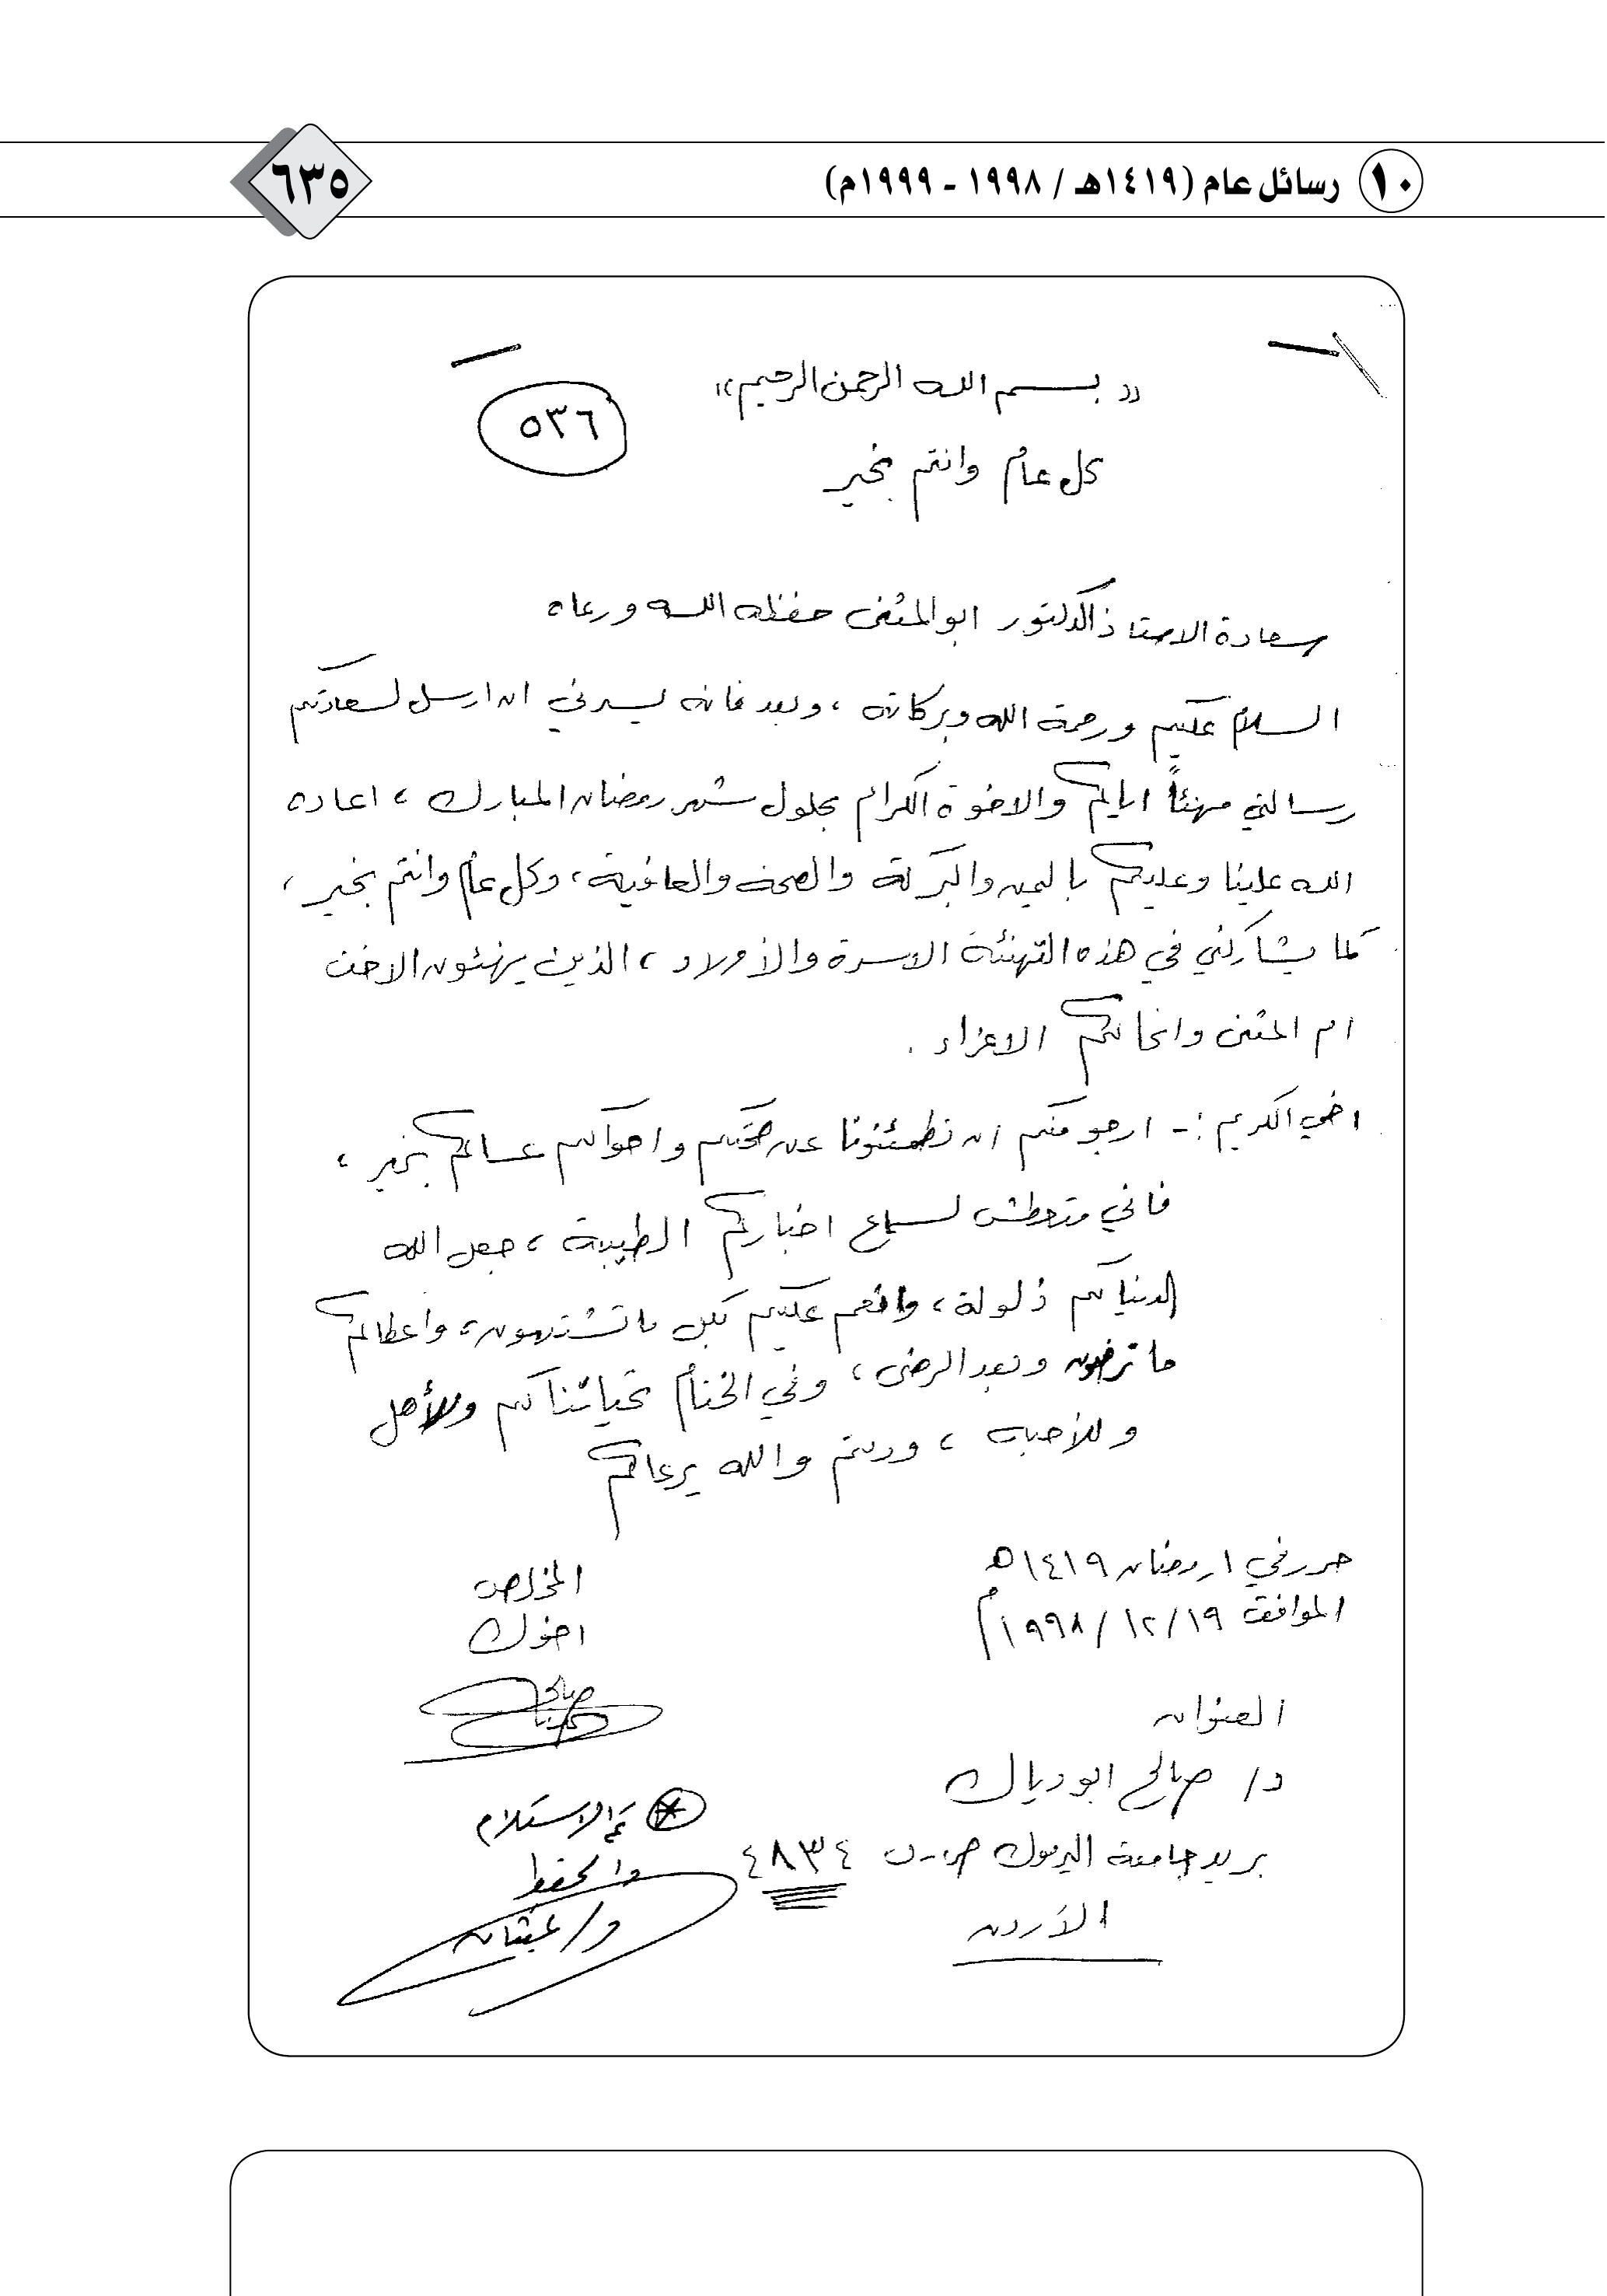 ١٠ رسائل عام (١٤١٩هـ / ١٩٩٨ - ١٩٩٩م)
٦٣٥
«بسم الله الرحمن الرحيم»
٥٣٦
كل عام وانتم بخير
سعادة الاستاذ الدكتور ابو المثنى حفظه الله ورعاه
السلام عليكم ورحمة الله وبركاته ، وبعد فانه يسرني ان ارسل لسعادتكم
رسالتي مهنئاً اياكم والاخوة الكرام بحلول شهر رمضان المبارك ، اعاده
الله علينا وعليكم باليمن والبركة والصحة والعافية ، وكل عام وانتم بخير ،
كما يشاركني في هذه التهنئة الاسرة والأولاد ، الذين يهنئون الاخت
ام المثنى وانجالكم الاعزاء .
اخي الكريم :- ارجو منكم ان تطمئنونا عن صحتكم واحوالكم عساكم بخير ،
فاني متعطش لسماع اخباركم الطيبة ، جعل الله
الدنيا لكم ذلولة ، وانعم عليكم بكل ما تشتهون ، واعطاكم
ما ترضون وبعد الرضى ، وفي الختام تحياتنا لكم وللأهل
وللأحباب ، ودمتم والله يرعاكم
حرر في ١ رمضان ١٤١٩ه
الموافق ١٩/١٢/١٩٩٨م
المخلص
اخوك
صالح
العنوان
د/ صالح ابودياك
بريد جامعة اليرموك ص.ب ٤٨٣٤
الأردن
تم الاستلام
والحفظ
د/ عثمان